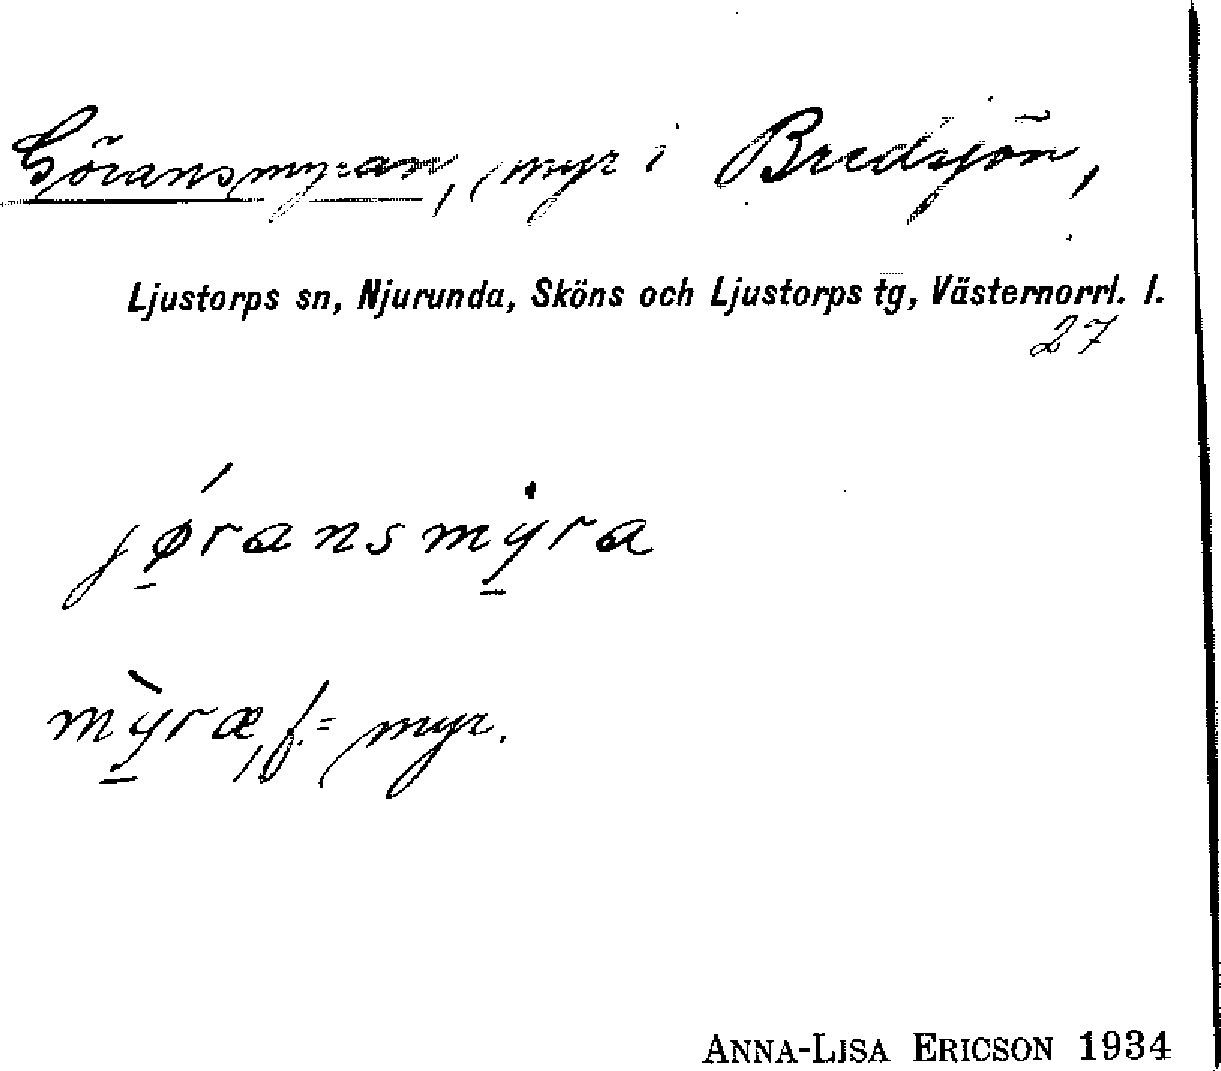 Göransmyran, myr i Bredsjön,
Ljustorps sn, Njurunda, Sköns och Ljustorps tg, Västernorrl. l.
27
jǿ̱ransmẏ̱ra
mỳ̱ræ, f. = myr.
ANNA-LISA ERICSON 1934